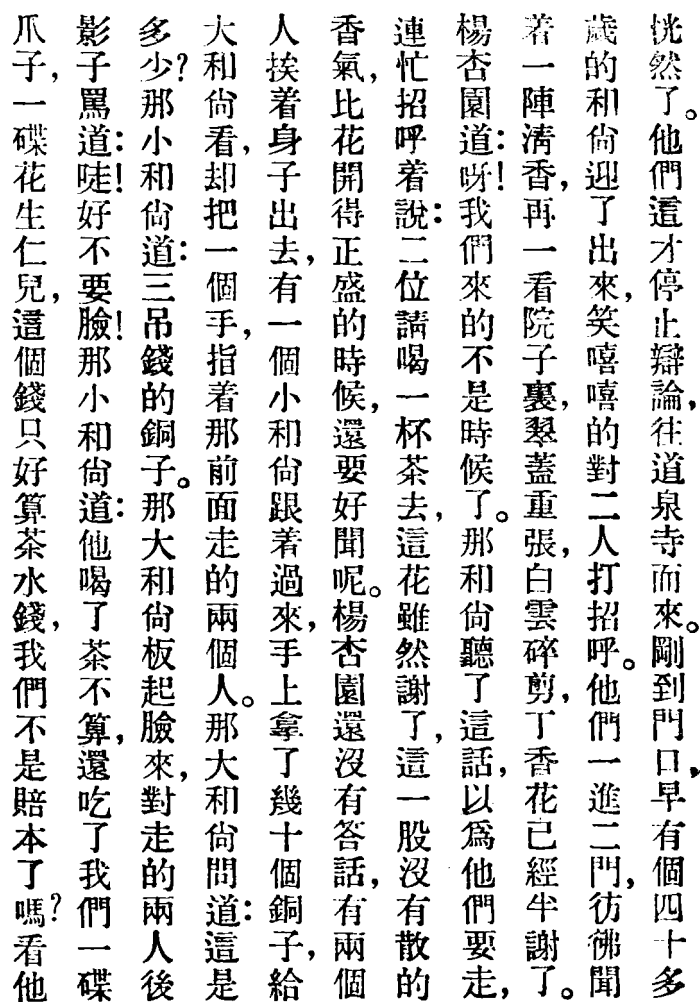 恍然了。他們這才停止辯論，往道泉寺而來。剛到門口，早有個四十多
歲的和尙迎了出來，笑嘻嘻的對二人打招呼。他們一進二門，彷彿聞
着一陣淸香，再一看院子裏，翠蓋重張，白雲碎剪，丁香花已經半謝了。
楊杏園道：呀！我們來的不是時候了。那和尙聽了這話，以爲他們要走，
連忙招呼着說：二位請喝一杯茶去，這花雖然謝了，這一股沒有散的
香氣，比花開得正盛的時候，還要好聞呢。楊杏園還沒有答話，有兩個
人挨着身子出去，有一個小和尙跟着過來，手上拿了幾十個銅子，給
大和尙看，却把一個手，指着那前面走的兩個人。那大和尙問道：這是
多少？那小和尙道：三吊錢的銅子。那大和尙板起臉來，對走的兩人後
影子罵道：哇！好不要臉！那小和尙道：他喝了茶不算，還吃了我們一碟
爪子，一碟花生仁兒，這個錢只好算茶水錢，我們不是賠本了嗎？看他